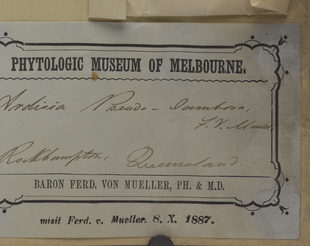 PHYTOLOGIC MUSEUM OF MELBOURNE.
Ardisia Pseudo-Jambosa,
F. v. Muell.
Rockhampton, Queensland.
BARON FERD. VON MUELLER, PH. & M.D.
misit Ferd. v. Mueller. 8. X. 1887.